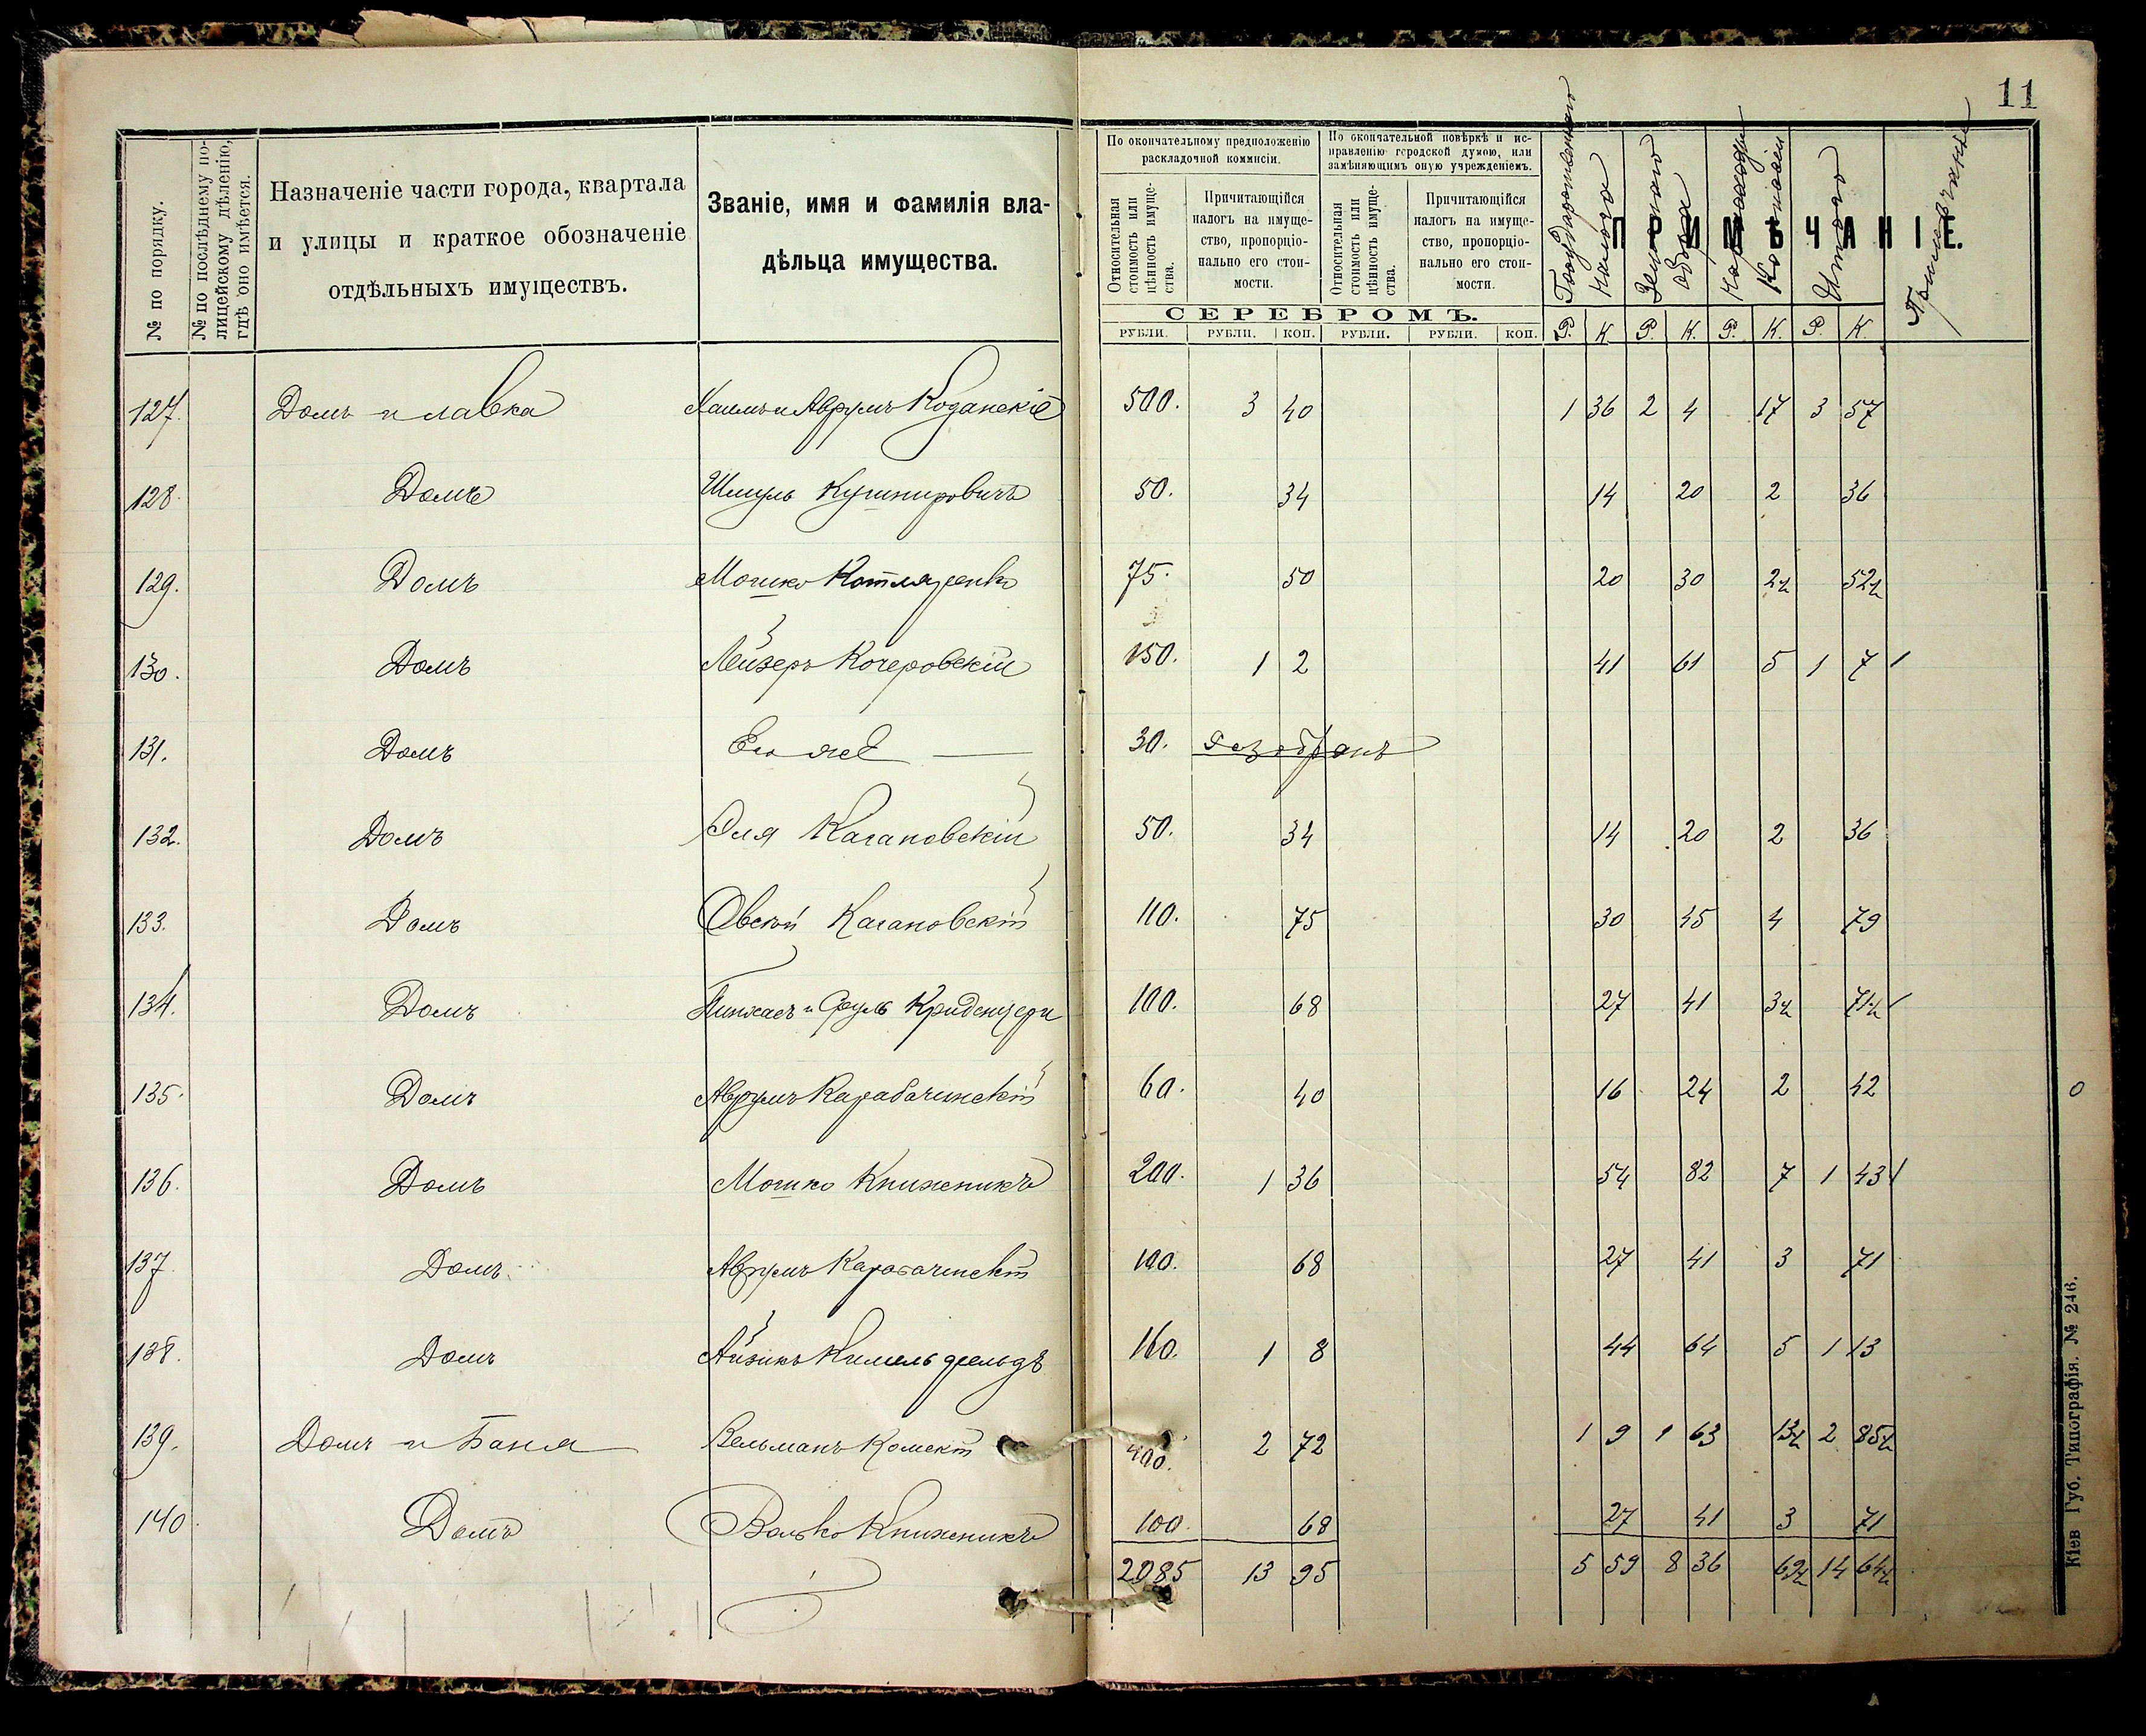 11
№ по порядку.
№ по послѣднему по-
лицейскому дѣленію,
гдѣ оно имѣется.
Назначеніе части города, квартала
и улицы и краткое обозначеніе
отдѣльныхъ имуществъ.
Званіе, имя и фамилія вла-
дѣльца имущества.
По окончательному предположенію
раскладочной коммисіи.
По окончательной повѣркѣ и ис-
правленію городской думою, или
замѣняющимъ оную учрежденіемъ.
Относительная
стоимость или
цѣнность имуще-
ства.
Причитающійся
налогъ на имуще-
ство, пропорціо-
нально его стои-
мости.
Относительная
стоимость или
цѣнность имуще-
ства.
Причитающійся
налогъ на имуще-
ство, пропорціо-
нально его стои-
мости.
ПРИМѢЧАНІЕ.
Государственнаго
налога
Земскаго
сбора
Итого
Примѣчаніе
СЕРЕБРОМЪ.
РУБЛИ. РУБЛИ. КОП. РУБЛИ. РУБЛИ. КОП. Р. К. Р. К. Р. К. Р. К.
127. Домъ и лавка Хаимъ и Аврумъ Коганскіе 500. 3 40 1 36 2 4 17 3 57
128. Домъ Шмуль Кушнировичъ 50. 34 14 20 2 36
129. Домъ Мошко Котляренко 75. 50 20 30 2½ 52½
130. Домъ Лейзеръ Кочеровскій 150. 1 2 41 61 5 1 7
131. Домъ Его же 30. разобранъ
132. Домъ Эля Кагановскій 50. 34 14 20 2 36
133. Домъ Овсѣй Кагановскій 110. 75 30 45 4 79
134. Домъ Пинхасъ и Сруль 100. 68 27 41 3½ 71½
135. Домъ Аврумъ Карабачинскій 60. 40 16 24 2 42
136. Домъ Мошко Книжникъ 200. 1 36 54 82 7 1 43
137. Домъ Аврумъ Карабачинскій 100. 68 27 41 3 71
138. Домъ Айзикъ Кимельфельдъ 160. 1 8 44 64 5 1 13
139. Домъ и Баня Вельманъ 400. 2 72 1 9 1 63 13½ 2 85½
140. Домъ Волько Книжникъ 100. 68 27 41 3 71
2085 13 95 5 59 8 36 69½ 14 64½
Кіев Губ. Типографія. № 246.